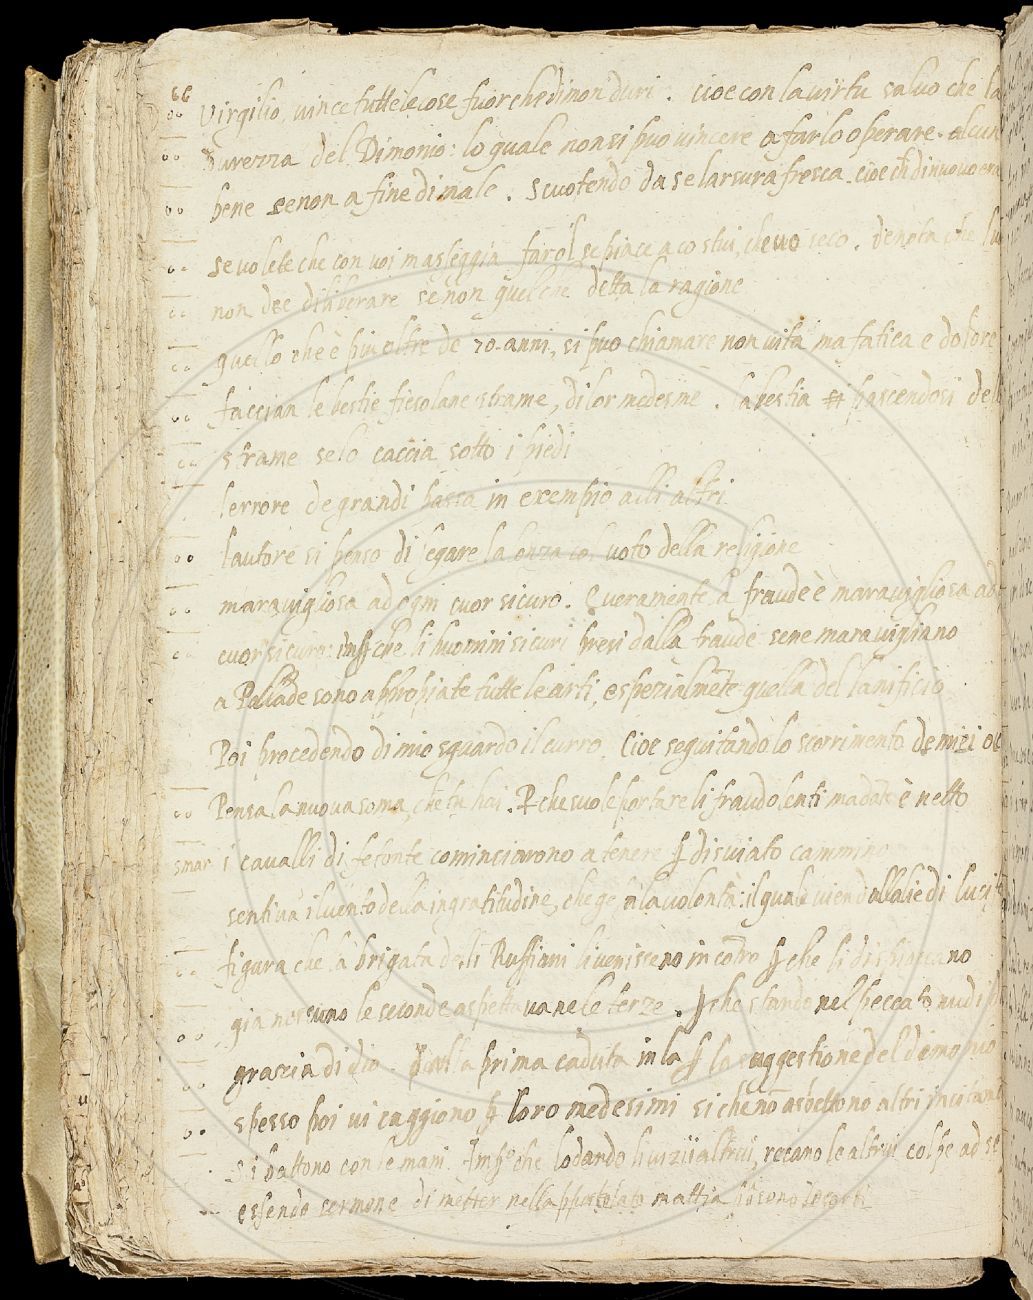 66
Virgilio, vince tutte le cose fuor che dimon duri. cioe con la virtu salvo che la
durezza del Dimonio: lo quale non si puo vincere a farlo operare alcun
bene se non a fine di male. Scuotendo da se larsura fresca. cioe ch di nuovo era
se volete che con voi m'asseggia farol se piace a costui, che vo seco. denota che lu
non dee diliberare se non quel che detta la ragione
quello che è piu oltre de 70. anni, si puo chiamare non vita ma fatica e dolore
faccian le bestie fiesolane strame, di lor medesme. la bestia pascendosi dello
strame se lo caccia sotto i piedi
lerrore de grandi passa in exempio alli altri
lautore si penso di legare la lonza col voto della religione
maravigliosa ad ogni cuor sicuro. E veramente la fraude è maravigliosa ad
cuor sicuro: che li huomini sicuri presi dalla fraude sene maravigliano
a Pallade sono appropiate tutte le arti, e spezialmēte quella del lanificio
Poi procedendo di mio sguardo il curro. Cioe seguitando lo scorrimento de miei oc
Pensa la nuova soma, che tu hai. P che suole portare li fraudolenti è netto
smar i cavalli di fetonte cominciorono a tenere disviato cammino
sentiva il vento della ingratitudine, che gela la volontà: il quale vien dallalie di luci
figura che la brigata deli Ruffiani li venisseno incōtro che li dispiacano
gia nessuno le seconde aspettava ne le terze. che stando nel peccato nudi
grazia di dio. Dalla prima caduta la suggestione del dimonio
spesso poi vi caggiono loro medesimi si che nō aspettono altri
Si battono con le mani. che lodando li vizii altrui, recano le altrui colpe ad se
essendo sermone di metter nella mattia